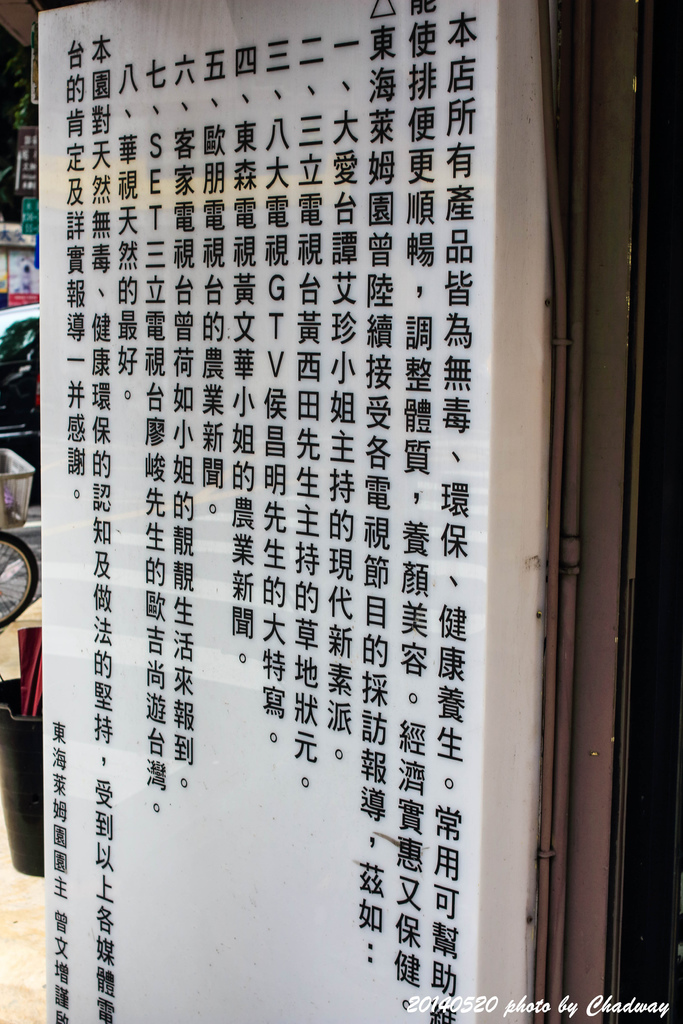 本店所有產品皆為無毒、環保、健康養生。常用可幫助維
能使排便更順暢，調整體質，養顏美容。經濟實惠又保健。
△東海萊姆園曾陸續接受各電視節目的採訪報導，茲如：
一、大愛台譚艾珍小姐主持的現代新素派。
二、三立電視台黃西田先生主持的草地狀元。
三、八大電視GTV侯昌明先生的大特寫。
四、東森電視黃文華小姐的農業新聞。
五、歐朋電視台的農業新聞。
六、客家電視台曾荷如小姐的靚靚生活來報到。
七、SET三立電視台廖峻先生的歐吉尚遊台灣。
八、華視天然的最好。
本園對天然無毒、健康環保的認知及做法的堅持，受到以上各媒體電
台的肯定及詳實報導一并感謝。
東海萊姆園園主 曾文增謹啟
20140520 photo by Chadway